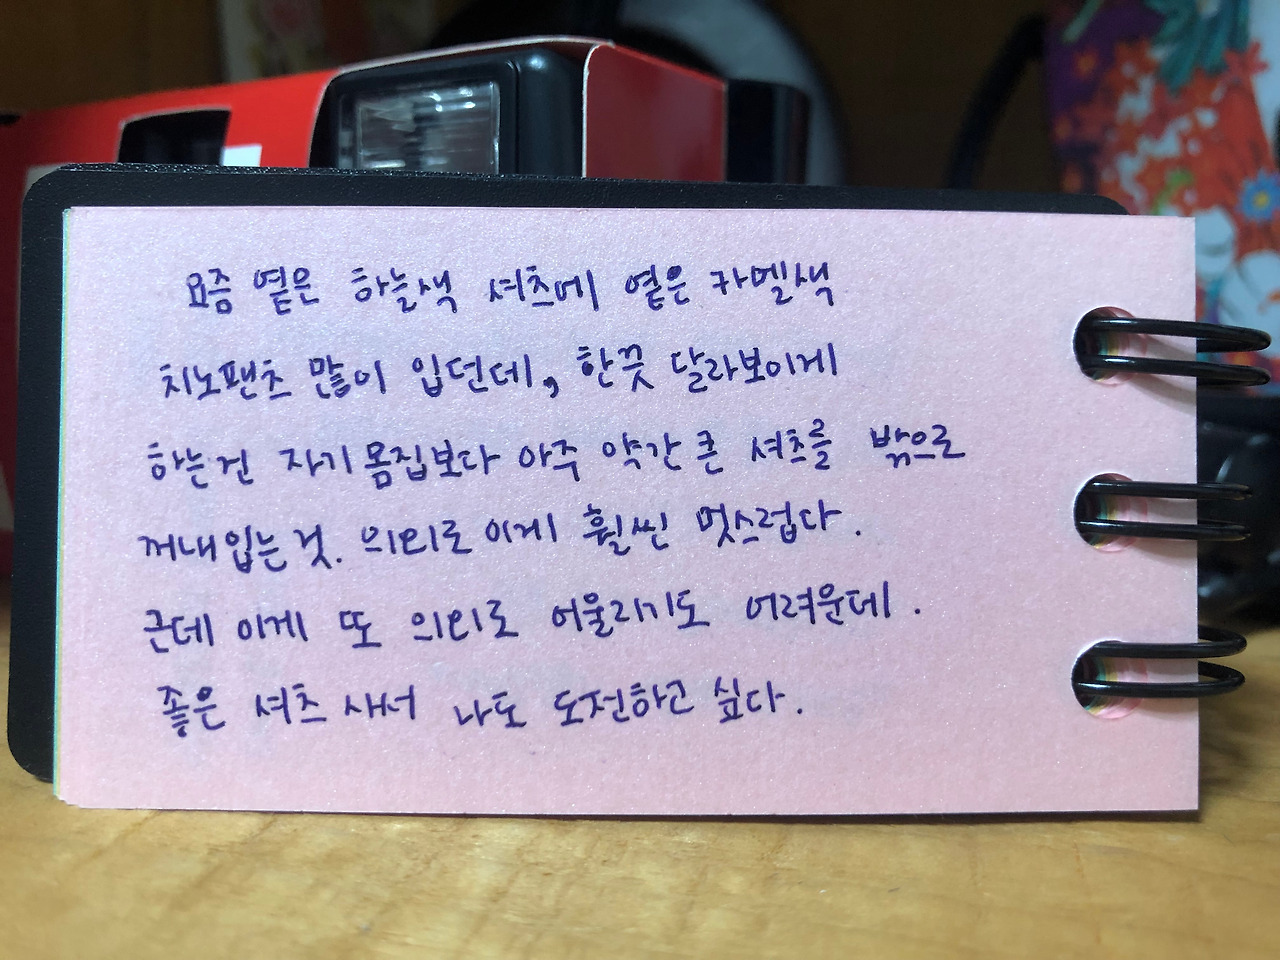 요즘 옅은 하늘색 셔츠에 옅은 카멜색
치노팬츠 많이 입던데, 한끗 달라보이게
하는건 자기몸집보다 아주 약간 큰 셔츠를 밖으로
꺼내입는것. 의외로 이게 훨씬 멋스럽다.
근데 이게 또 의외로 어울리기도 어려운데.
좋은 셔츠 사서 나도 도전하고 싶다.